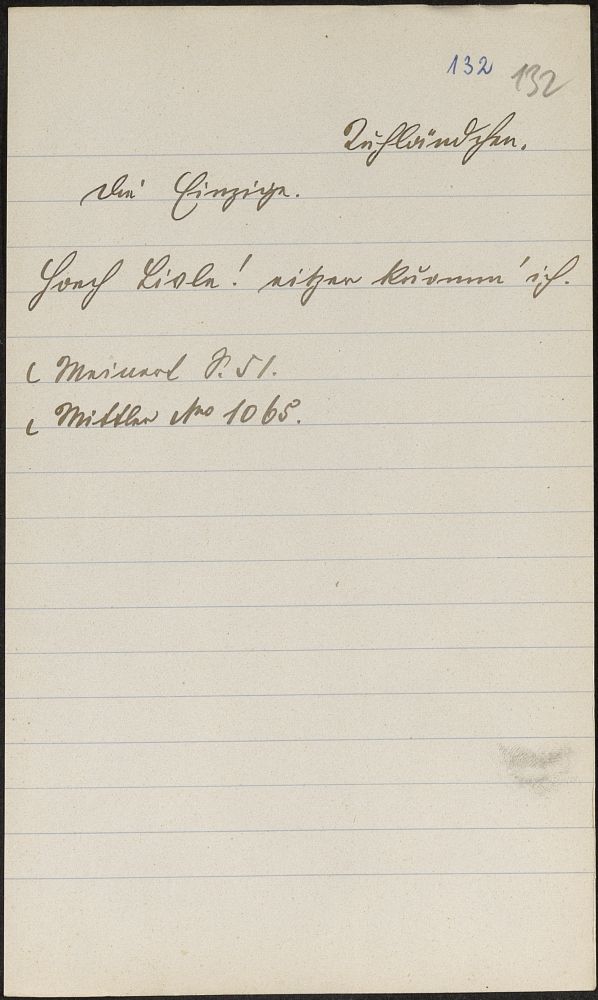 132 132
Kuhländchen.
Die Einzige.
Hoech Liole! eitzer kuomm' ich.
( Meinert S. 51.
( Mittler No 1065.